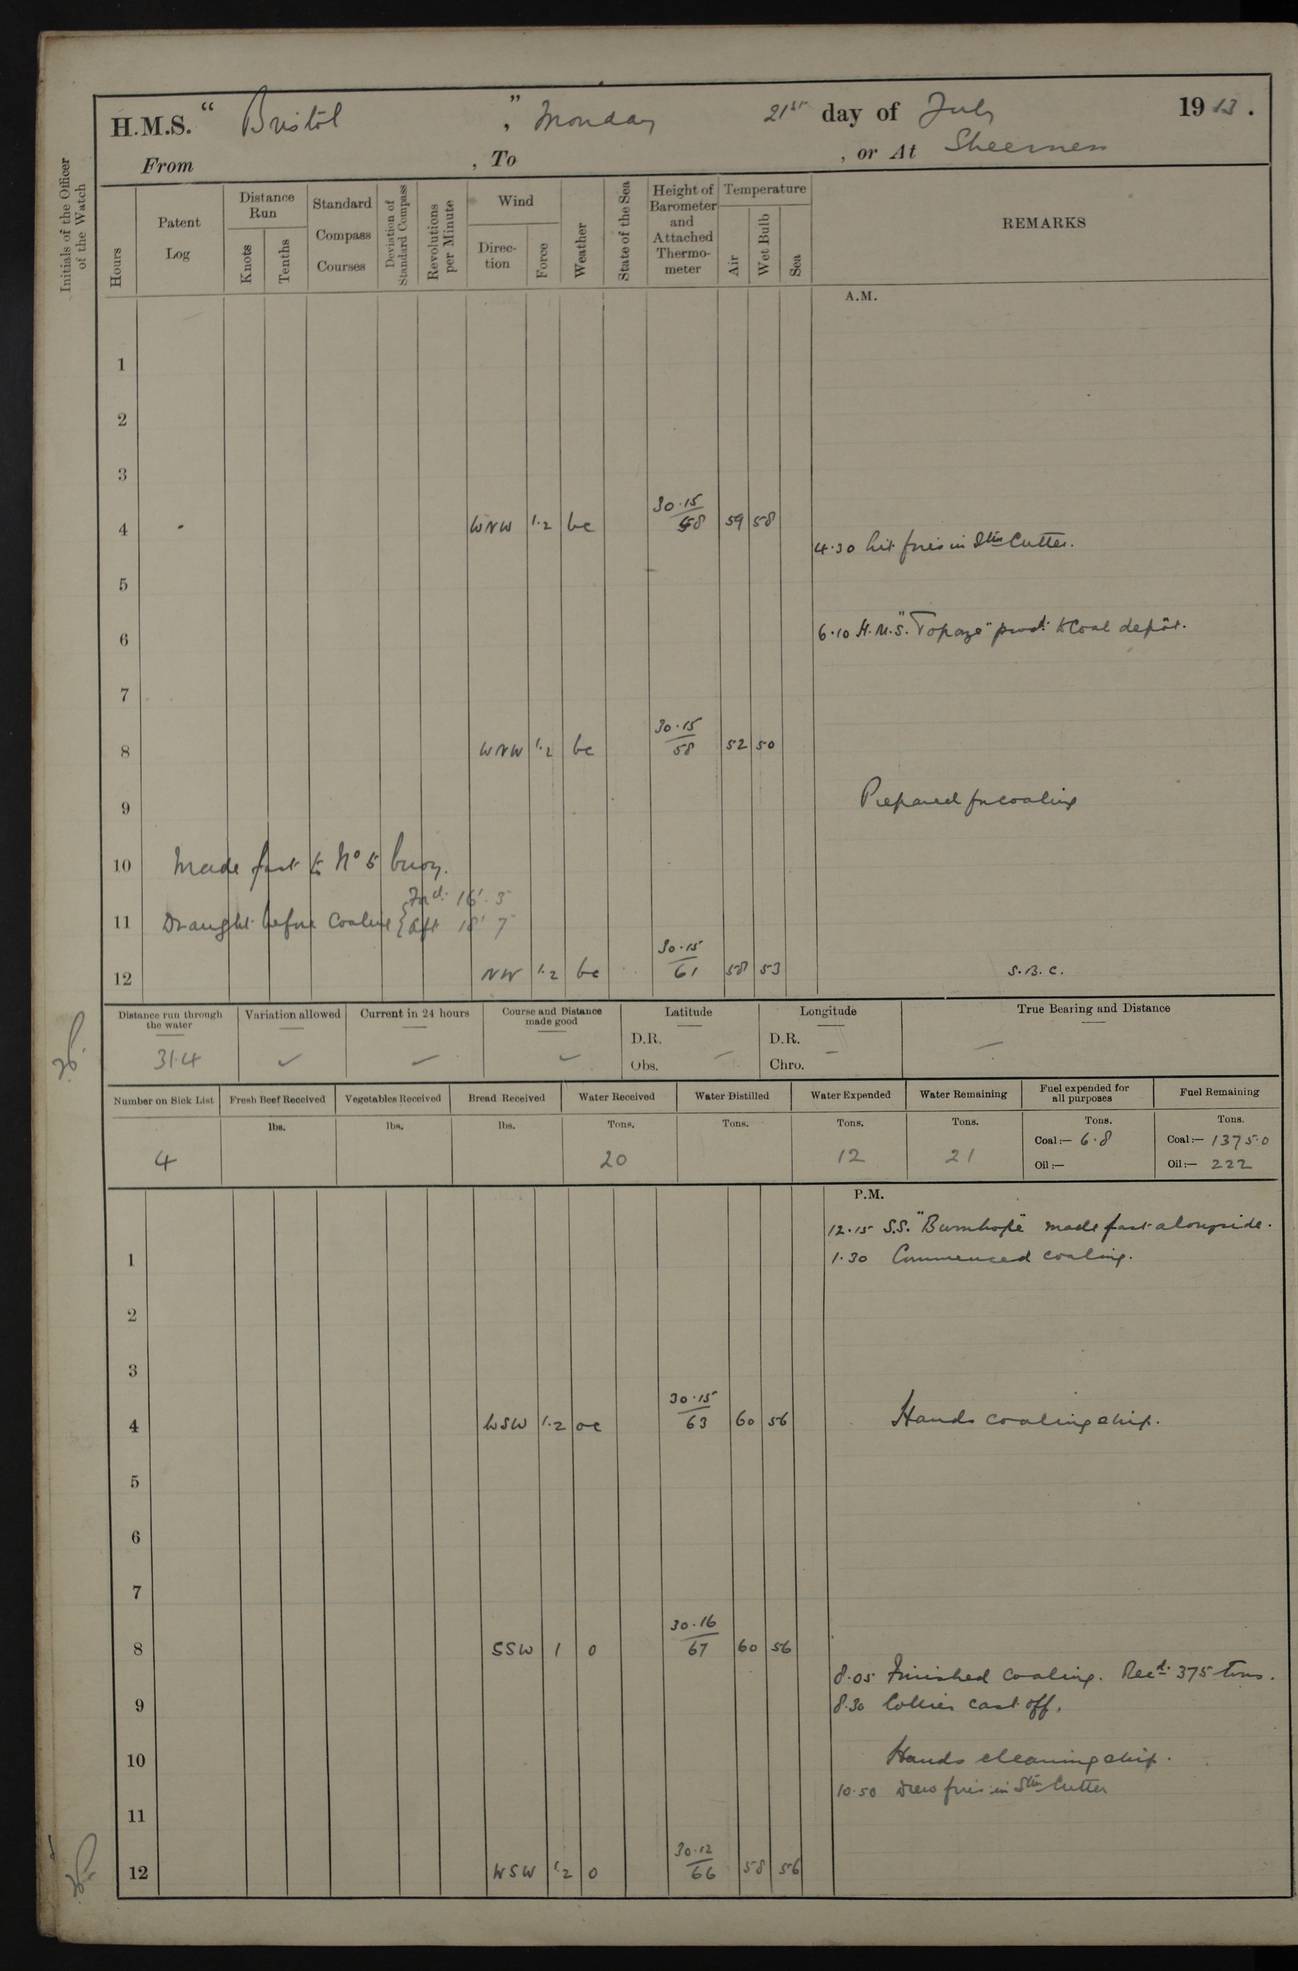 H.M.S. “ Bristol ” , Monday 21st day of July 1913.
From , To , or At Sheerness
Initials of the Officer of the Watch
Hours
Patent Log
Distance Run
Knots
Tenths
Standard Compass Courses
Deviation of Standard Compass
Revolutions per Minute
Wind
Direction
Force
Weather
State of the Sea
Height of Barometer and Attached Thermometer
Temperature
Air
Wet Bulb
Sea
REMARKS
A.M.
1
2
3
4 WNW 1.2 bc 30.15/58 59 58
4.30 Lit fires in Stm Cutter.
5
6 6.10 H.M.S. "Topaze" procd. to Coal depôt.
7
8 WNW 1.2 bc 30.15/58 52 50
9 Prepared for coaling
10 Made fast to No 5 buoy.
11 Draught before Coaling { Ford. 16' 3"
Aft 18' 7"
12 NW 1.2 bc 30.15/61 58 53 S.B.C.
Distance run through the water
31.4
Variation allowed
Current in 24 hours
Course and Distance made good
Latitude
D.R.
Obs.
Longitude
D.R.
Chro.
True Bearing and Distance
Number on Sick List
4
Fresh Beef Received
lbs.
Vegetables Received
lbs.
Bread Received
lbs.
Water Received
Tons.
20
Water Distilled
Tons.
Water Expended
Tons.
12
Water Remaining
Tons.
21
Fuel expended for all purposes
Tons.
Coal:— 6.8
Oil:—
Fuel Remaining
Tons.
Coal:— 1375.0
Oil:— 222
P.M.
12.15 S.S. "Burnhope" made fast alongside.
1 1.30 Commenced coaling.
2
3
4 WSW 1.2 oc 30.15/63 60 56 Hands coaling ship.
5
6
7
8 SSW 1 o 30.16/67 60 56
8.05 Finished Coaling. Recd. 375 tons.
9 8.30 Collier cast off.
10 Hands cleaning ship.
10.50 Drew fires in Stm Cutter
11
12 WSW 1.2 o 30.12/66 58 56